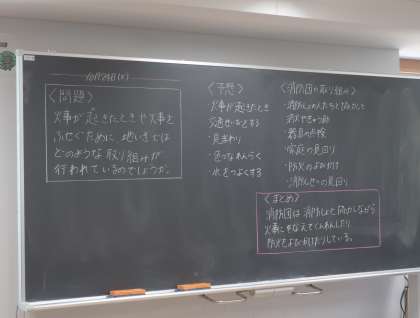 10月24日(火)
〈問題〉
火事が起きたときや火事を
ふせぐために、地いきでは
どのような取り組みが
行われているのでしょうか。
〈予想〉
火事が起きたとき
交通せいりをする
・見まわり
・水をつよくする
〈消防団の取り組み〉
・消防しょの人たちと協力して
消火やきゅう助
・器具の点検
・家庭の見回り
・防火のよびかけ
・消火せんの見回り
〈まとめ〉
消防団は消防しょと協力しながら
火事にそなえてくんれんしたり
防火をよびかけたりしている。